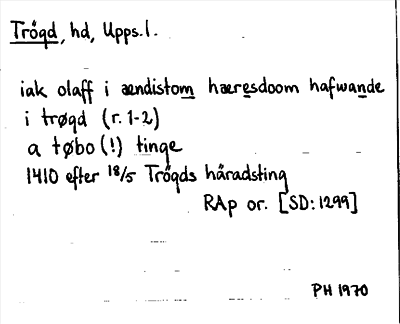 Trögd, hd, Upps.l.
iak olaff i ændistom hæresdoom hafwande
i trøgd (r.1-2)
a tøbo (!) tinge
1410 efter 18/5 Trögds häradsting
RAp or. [SD:1299]
PH 1970